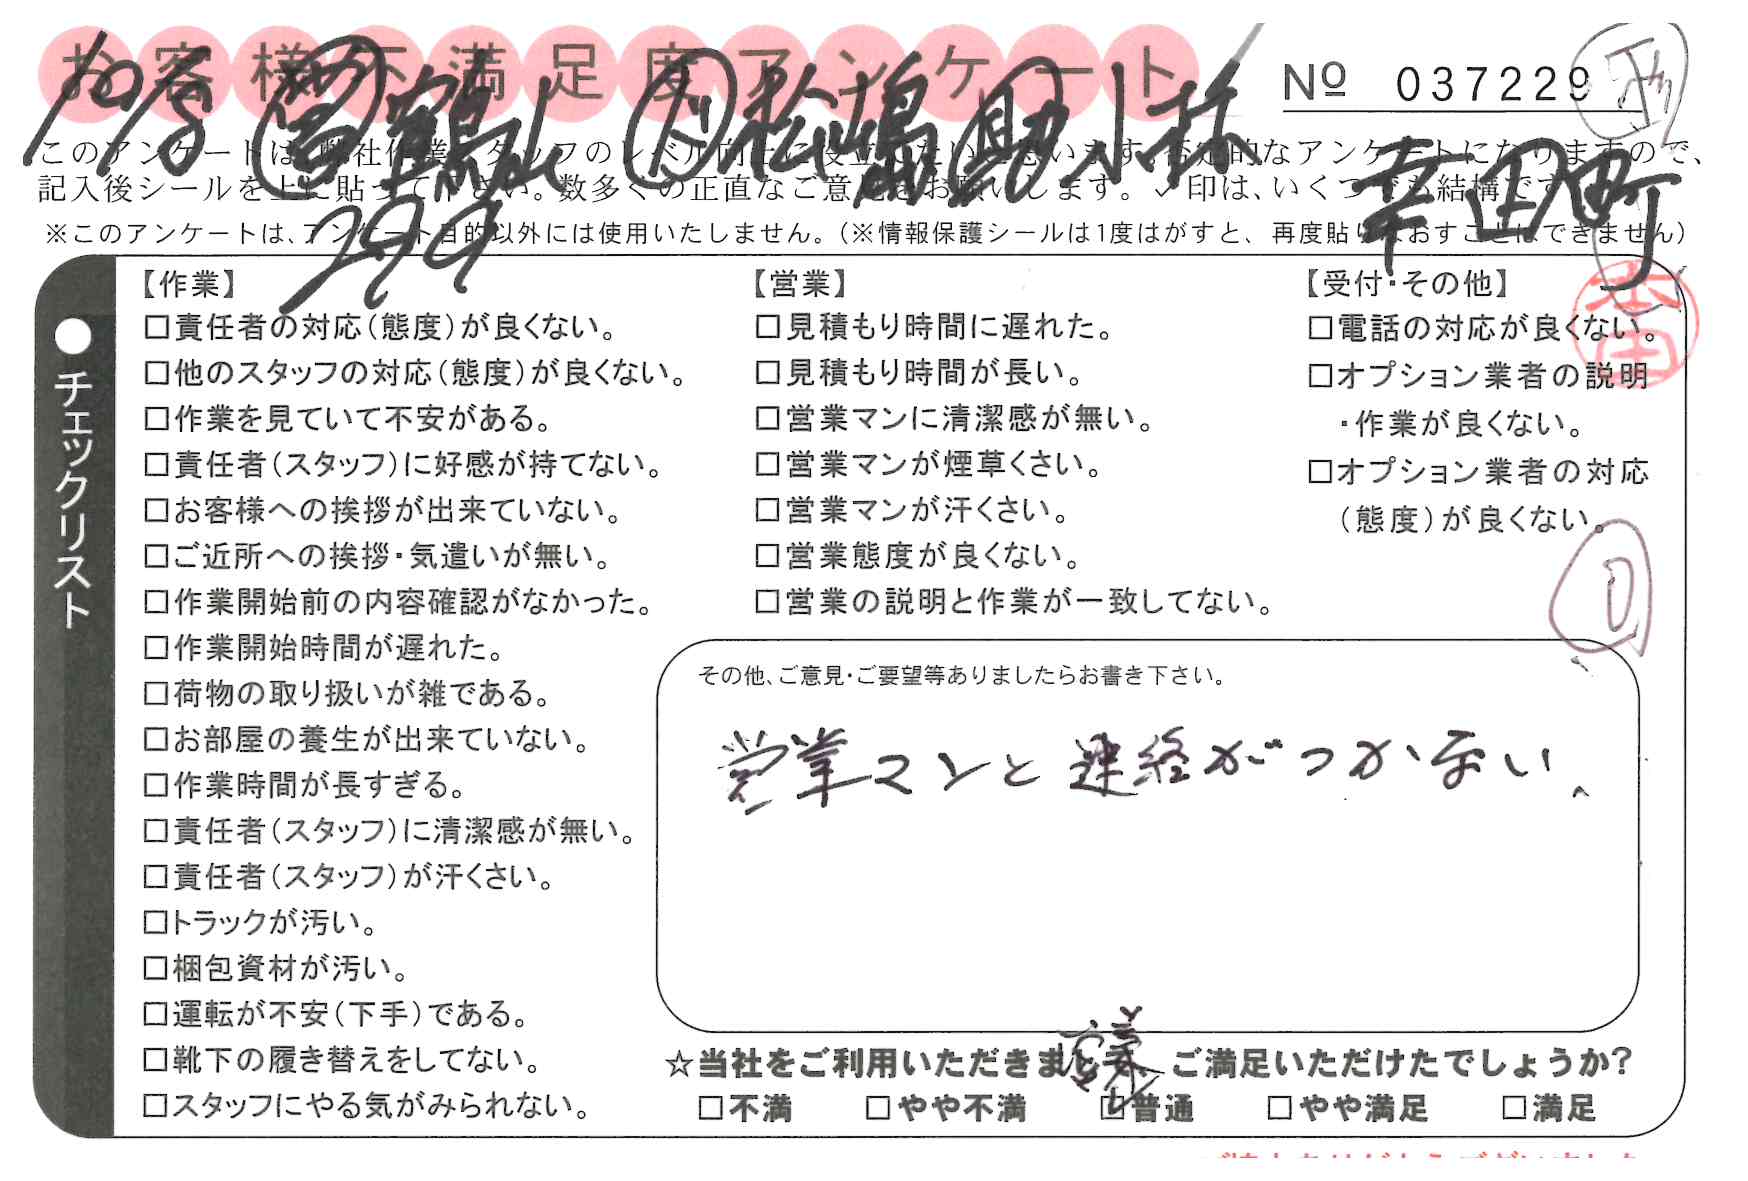 お客様不満足度アンケート
№ 037229
鶴山 松嶋 助 小林
幸田町
299
このアンケートは、弊社作業スタッフのレベル向上に役立てたいと思います。否定的なアンケートになりますので、
記入後シールを上に貼って下さい。数多くの正直なご意見をお願いします。✓印は、いくつでも結構です。
※このアンケートは、アンケート目的以外には使用いたしません。(※情報保護シールは1度はがすと、再度貼りなおすことはできません)
●チェックリスト
【作業】
□責任者の対応(態度)が良くない。
□他のスタッフの対応(態度)が良くない。
□作業を見ていて不安がある。
□責任者(スタッフ)に好感が持てない。
□お客様への挨拶が出来ていない。
□ご近所への挨拶・気遣いが無い。
□作業開始前の内容確認がなかった。
□作業開始時間が遅れた。
□荷物の取り扱いが雑である。
□お部屋の養生が出来ていない。
□作業時間が長すぎる。
□責任者(スタッフ)に清潔感が無い。
□責任者(スタッフ)が汗くさい。
□トラックが汚い。
□梱包資材が汚い。
□運転が不安(下手)である。
□靴下の履き替えをしてない。
□スタッフにやる気がみられない。
【営業】
□見積もり時間に遅れた。
□見積もり時間が長い。
□営業マンに清潔感が無い。
□営業マンが煙草くさい。
□営業マンが汗くさい。
□営業態度が良くない。
□営業の説明と作業が一致してない。
【受付・その他】
□電話の対応が良くない。
□オプション業者の説明
・作業が良くない。
□オプション業者の対応
(態度)が良くない。
本田
その他、ご意見・ご要望等ありましたらお書き下さい。
営業マンと連絡がつかない、
☆当社をご利用いただきまして、ご満足いただけたでしょうか?
□不満 □やや不満 □普通 □やや満足 □満足